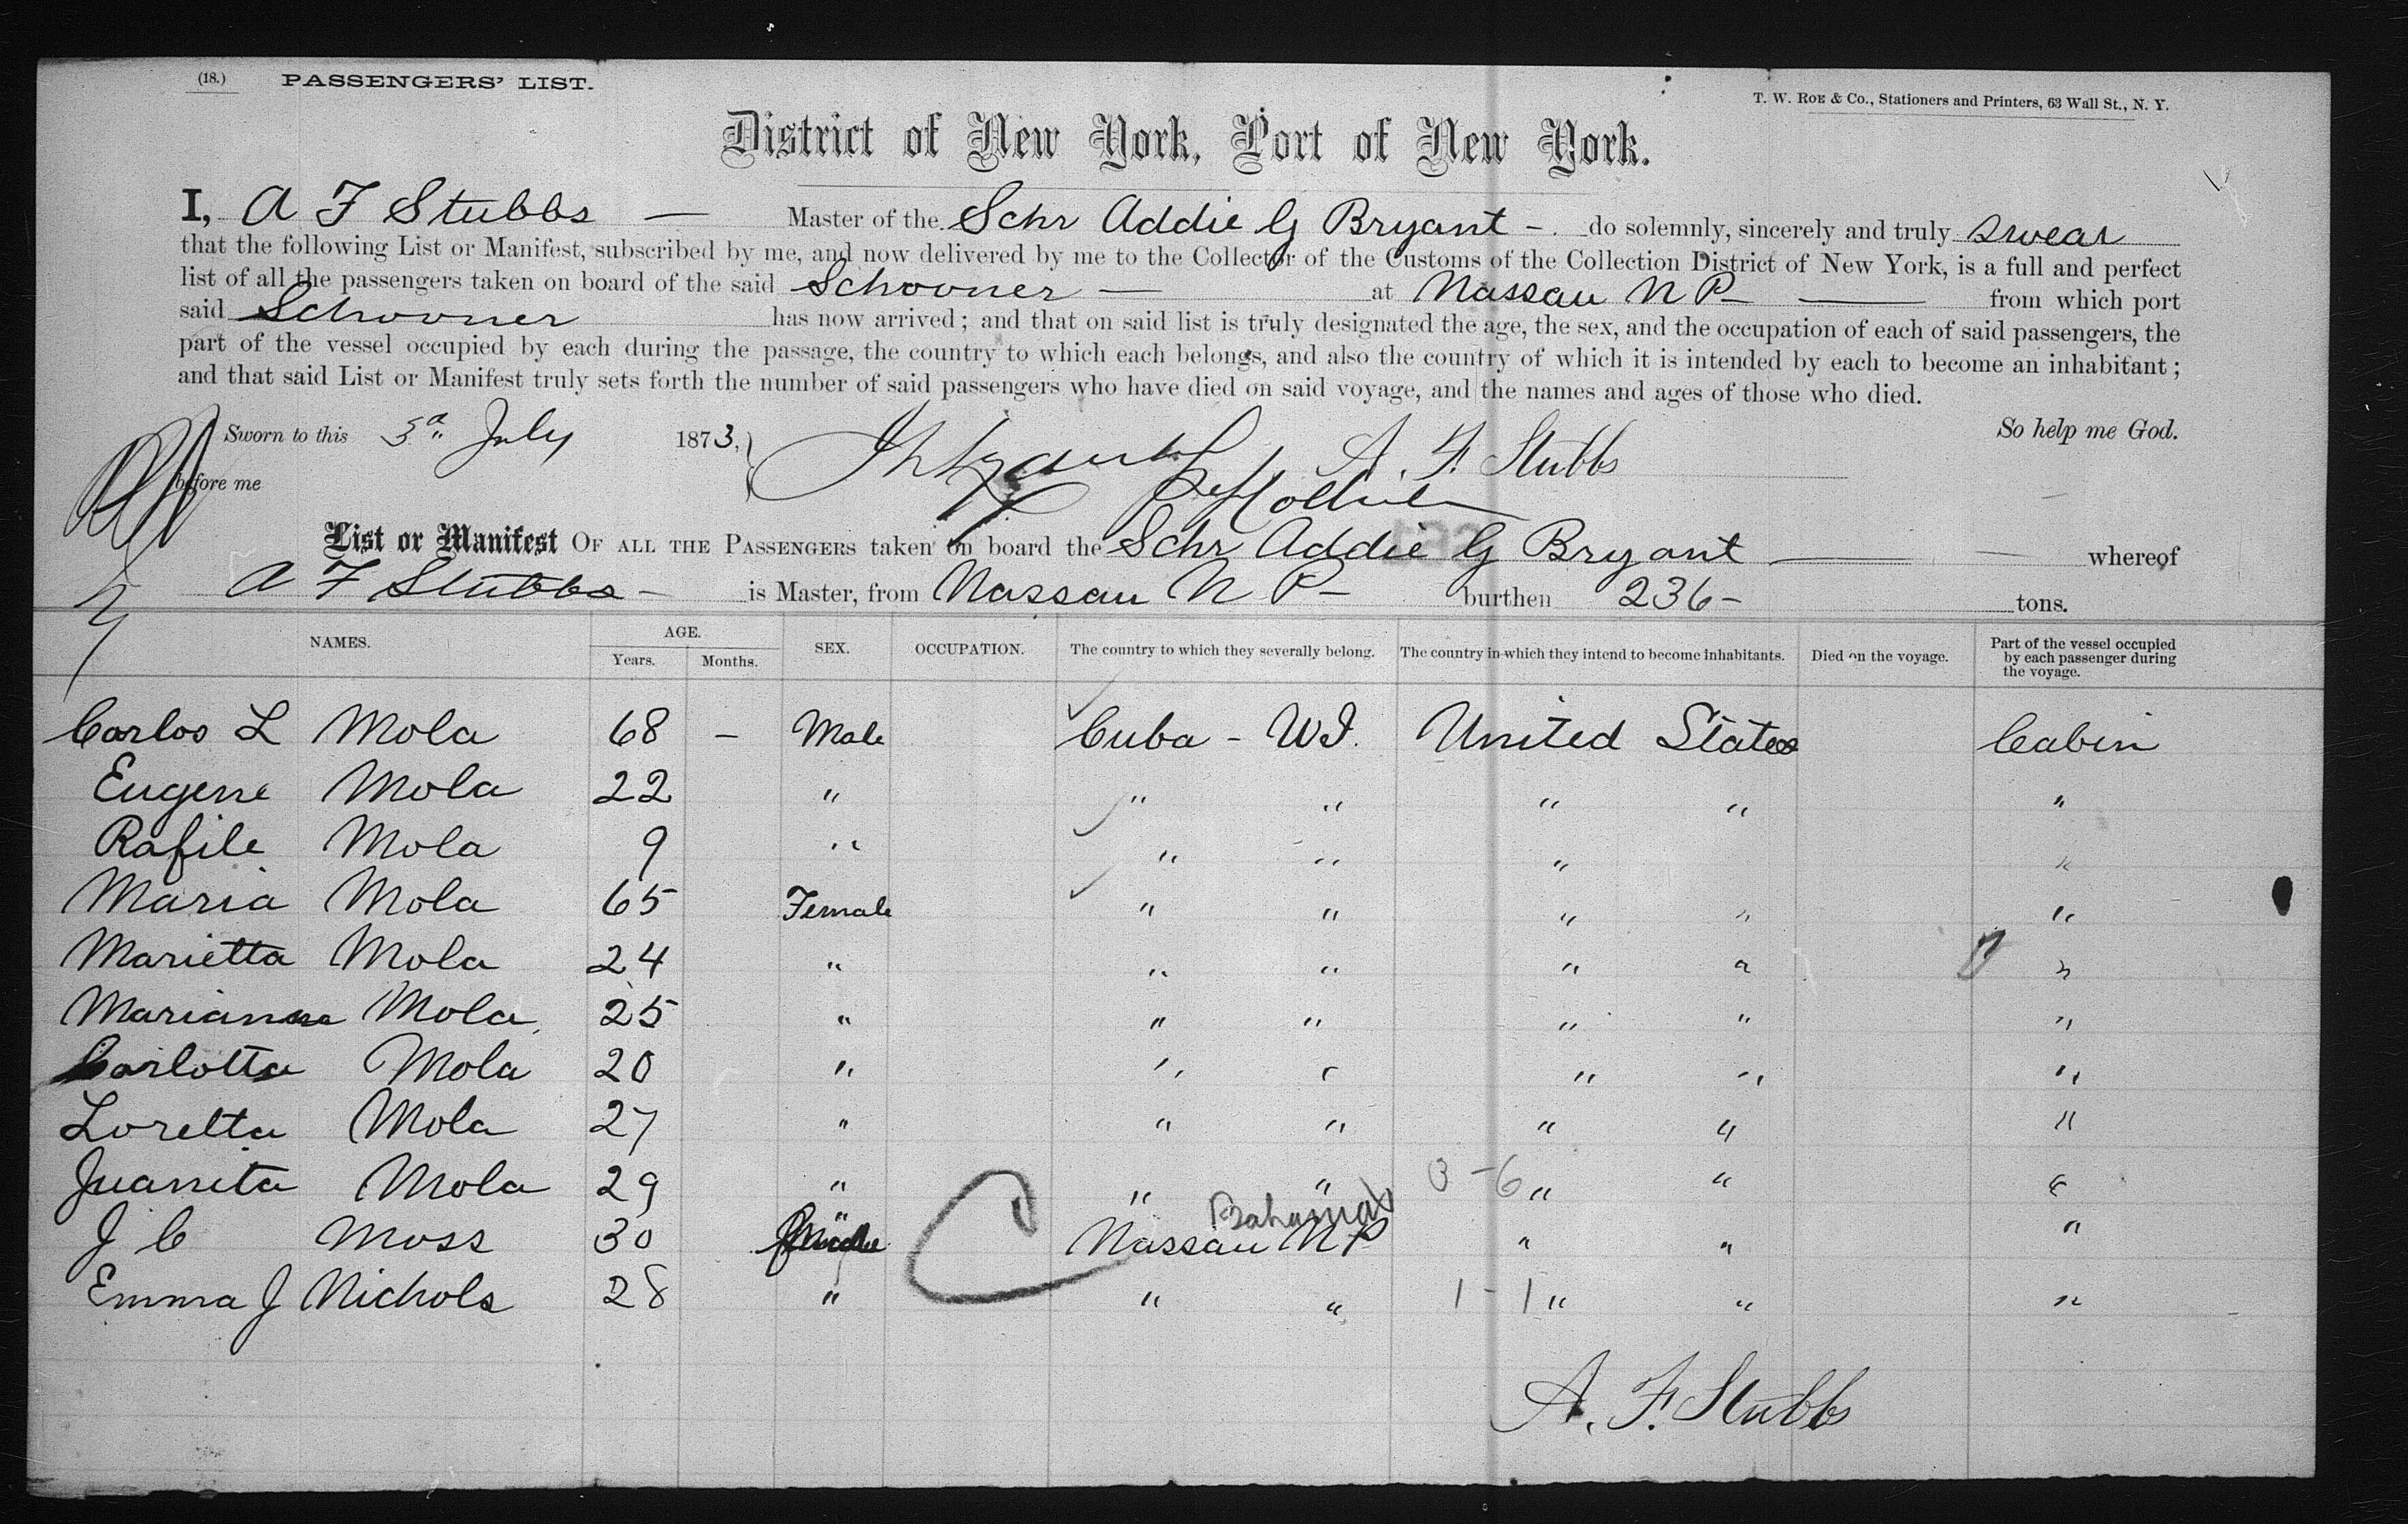 (18.) PASSENGERS' LIST.
T. W. ROE & Co., Stationers and Printers, 63 Wall St., N. Y.
District of New York, Port of New York.
I, A F Stubbs — Master of the Schr Addie G Bryant - do solemnly, sincerely and truly swear
that the following List or Manifest, subscribed by me, and now delivered by me to the Collector of the Customs of the Collection District of New York, is a full and perfect
list of all the passengers taken on board of the said Schooner — at Nassau N P — from which port
said Schooner has now arrived; and that on said list is truly designated the age, the sex, and the occupation of each of said passengers, the
part of the vessel occupied by each during the passage, the country to which each belongs, and also the country of which it is intended by each to become an inhabitant;
and that said List or Manifest truly sets forth the number of said passengers who have died on said voyage, and the names and ages of those who died.
Sworn to this July 1873, A. F. Stubbs So help me God.
before me
List or Manifest OF ALL THE PASSENGERS taken on board the Schr Addie G Bryant — whereof
A F Stubbs - is Master, from Nassau N P - burthen 236 - tons.
NAMES. AGE. Years. Months. SEX. OCCUPATION. The country to which they severally belong. The country in which they intend to become inhabitants. Died on the voyage. Part of the vessel occupied by each passenger during the voyage.
Carlos L Mola 68 - Male Cuba - W I. United States Cabin
Eugene Mola 22 " " " " " "
Rafile Mola 9 " " " " "
Maria Mola 65 Female " " " " "
Marietta Mola 24 " " " " " "
Marianna Mola 25 " " " " " "
Carlotta Mola 20 " " " " " "
Loretta Mola 27 " " " " " "
Juanita Mola 29 " " " 3-6 " " "
Bahamas
J C Moss 30 " Nassau N P " " "
Emma J Nichols 28 " " " 1-1 " " "
A. F. Stubbs